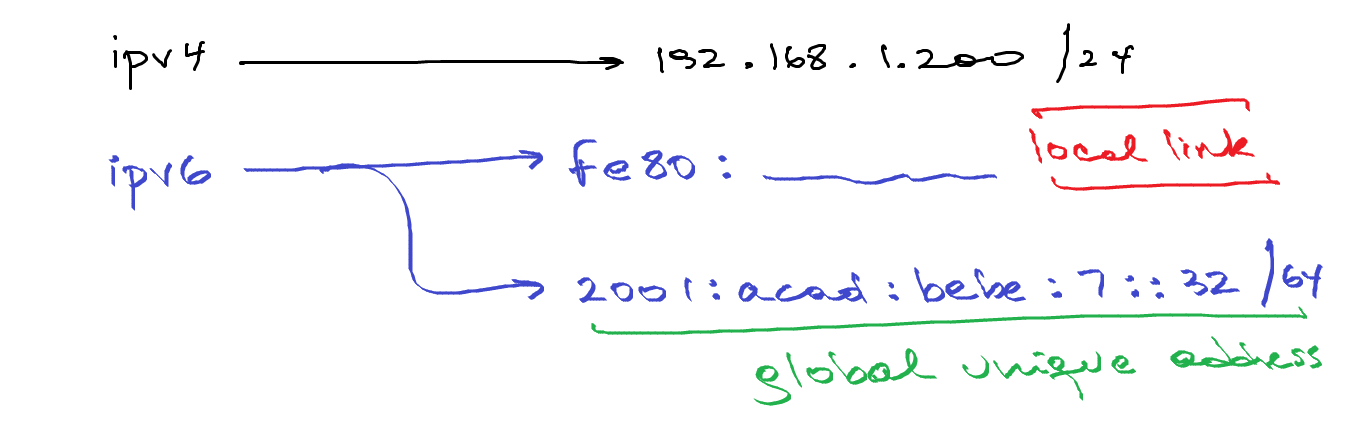 ipv4 → 192.168.1.200 /24
ipv6 → fe80: ______ local link
→ 2001:acad:bebe:7::32 /64
global unique address